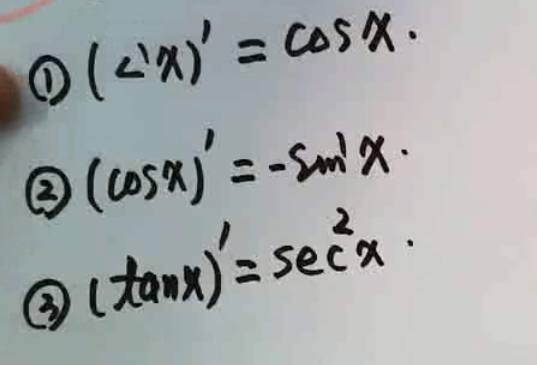 ① (x)' = cosx.
② (cosx)' = -sin x.
③ (tanx)' = sec²x.